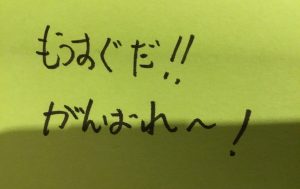 もうすぐだ!!
がんばれ〜!